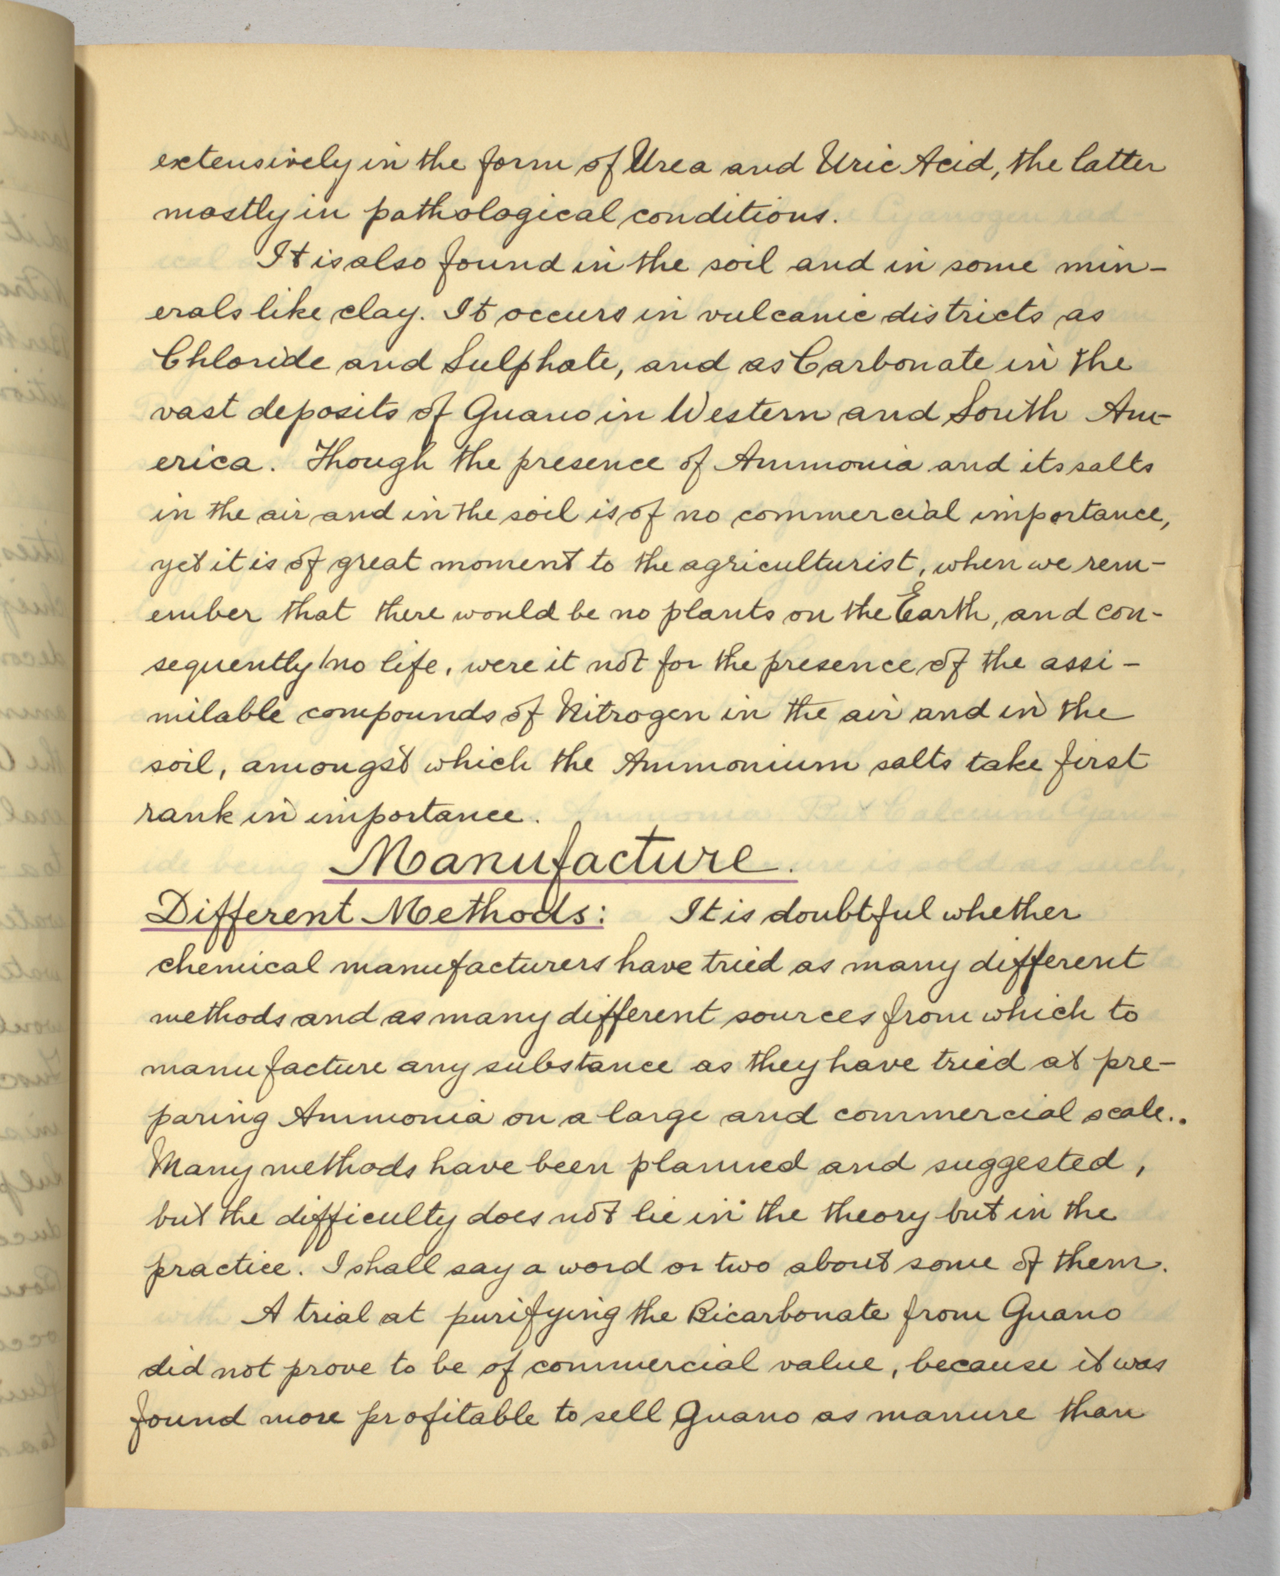 extensively in the form of Urea and Uric Acid, the latter
mostly in pathological conditions.
It is also found in the soil and in some min-
erals like clay. It occurs in vulcanic districts as
Chloride and Sulphate, and as Carbonate in the
vast deposits of Guano in Western and South Am-
erica. Though the presence of Ammonia and its salts
in the air and in the soil is of no commercial importance,
yet it is of great moment to the agriculturist, when we rem-
ember that there would be no plants on the Earth, and con-
sequently no life, were it not for the presence of the assi-
milable compounds of Nitrogen in the air and in the
soil, amongst which the Ammonium salts take first
rank in importance.
Manufacture.
Different Methods: It is doubtful whether
chemical manufacturers have tried as many different
methods and as many different sources from which to
manufacture any substance as they have tried at pre-
paring Ammonia on a large and commercial scale..
Many methods have been planned and suggested,
but the difficulty does not lie in the theory but in the
practice. I shall say a word or two about some of them.
A trial at purifying the Bicarbonate from Guano
did not prove to be of commercial value, because it was
found more profitable to sell Guano as manure than